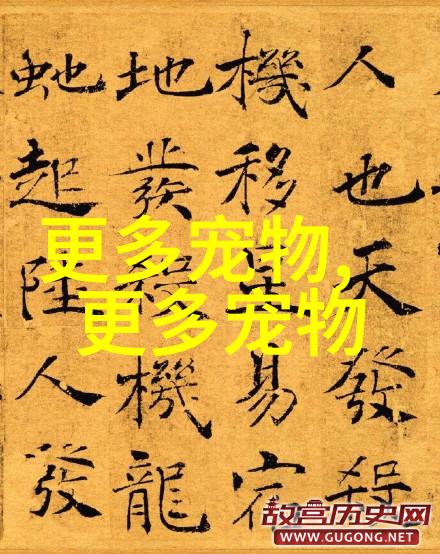 人也天發殺
機移星易宿
地發殺機龍
虵起陸人發
更多宠物,
更多宠物
故宫历史网
WWW.GUGONG.NET